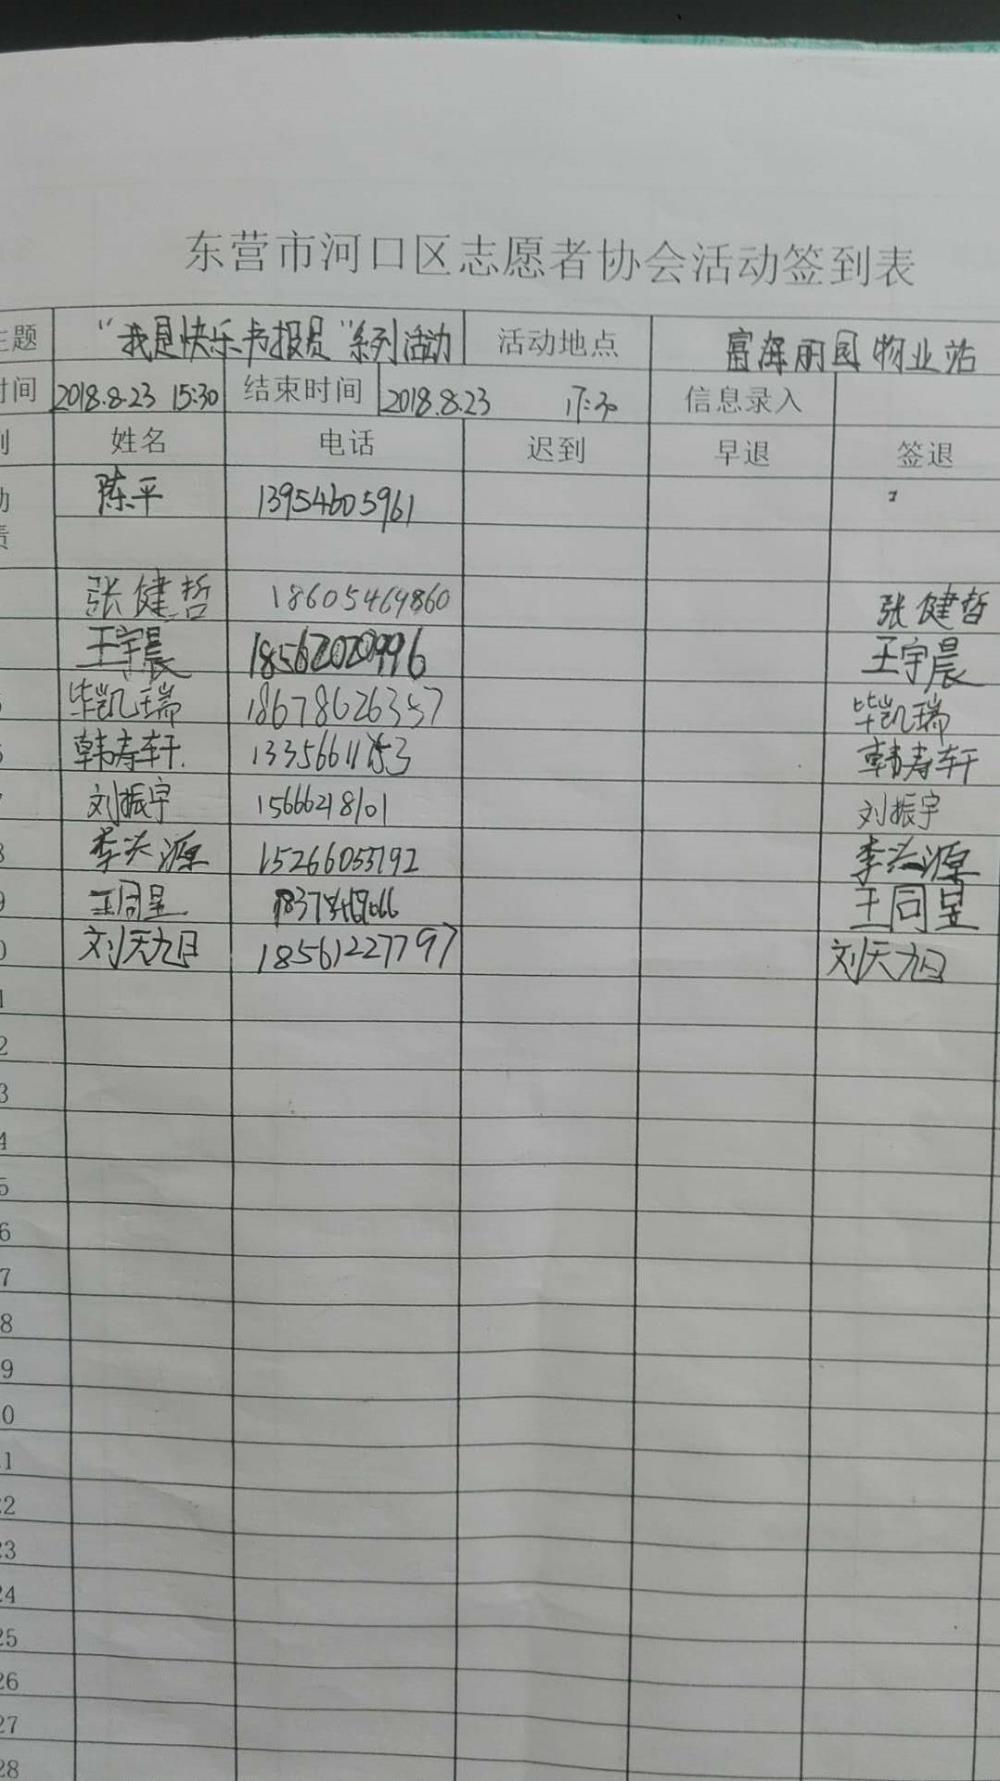 东营市河口区志愿者协会活动签到表
主题 “我是快乐书报员”系列活动 活动地点 富海丽园物业站
时间 2018.8.23 15:30 结束时间 2018.8.23 17:30 信息录入
别 姓名 电话 迟到 早退 签退
动 陈平 13954605961
责
张健哲 18605469860 张健哲
王宇晨 18562020996 王宇晨
毕凯瑞 18678626357 毕凯瑞
韩寿轩 13356611153 韩寿轩
刘振宇 15666218101 刘振宇
8 李浩源 15266055792 李浩源
9 王同昱 王同昱
0 刘天旭 18561227797 刘天旭
1
2
3
4
5
6
7
8
9
0
1
22
23
24
25
26
27
28